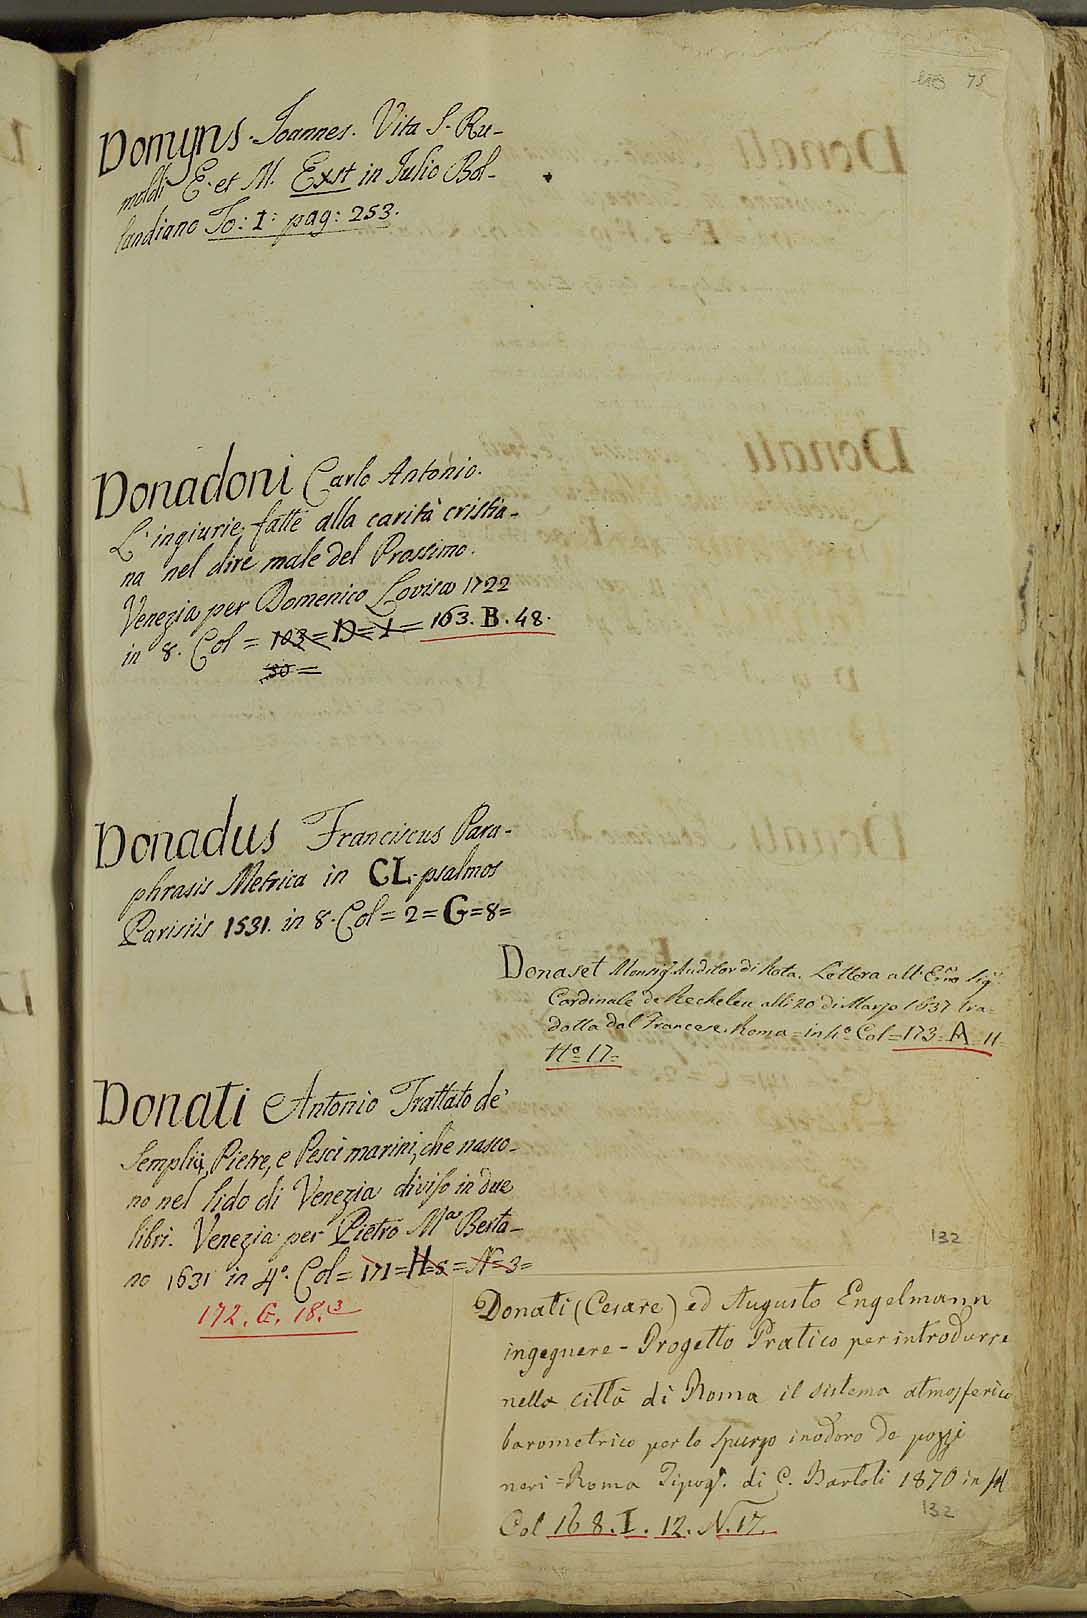 75
Domyns. Ioannes. Vita S. Ru-
moldi E. et M. Exst in Julio Bol-
landiano To: I: pag: 253.
Donadoni Carlo Antonio.
L'ingiurie fatte alla carità cristia-
na nel dire male del Prossimo.
Venezia per Domenico Lovisa 1722
in 8. Col = 103 = D = I = 163. B. 48.
30 =
Donadus Franciscus Para-
phrasis Metrica in CL. psalmos
Parisiis 1531. in 8. Col = 2 = G = 8 =
Donaset Monsig.r Auditor di Rota. Lettera all' Emo Sig.r
Cardinale de Recheleu alli 20 di Marzo 1637 tra-
dotta dal Francese. Roma = in 4.o Col = 173 = A = 11 =
No 17 =
Donati Antonio Trattato de'
Semplici, Pietre, e Pesci marini, che nasco-
no nel lido di Venezia diviso in due
libri. Venezia per Pietro Ma Berta-
no 1631 in 4.o Col = 171 = H = 5 = N = 3 =
172. G. 18.
132
Donati (Cesare) ed Augusto Engelmann
ingegnere - Progetto Pratico per introdurre
nella città di Roma il sistema atmosferico
barometrico per lo spurgo inodoro de pozzi
neri = Roma Tipog. di C. Bartoli 1870 in
Col 168. I. 12. N. 17.
132